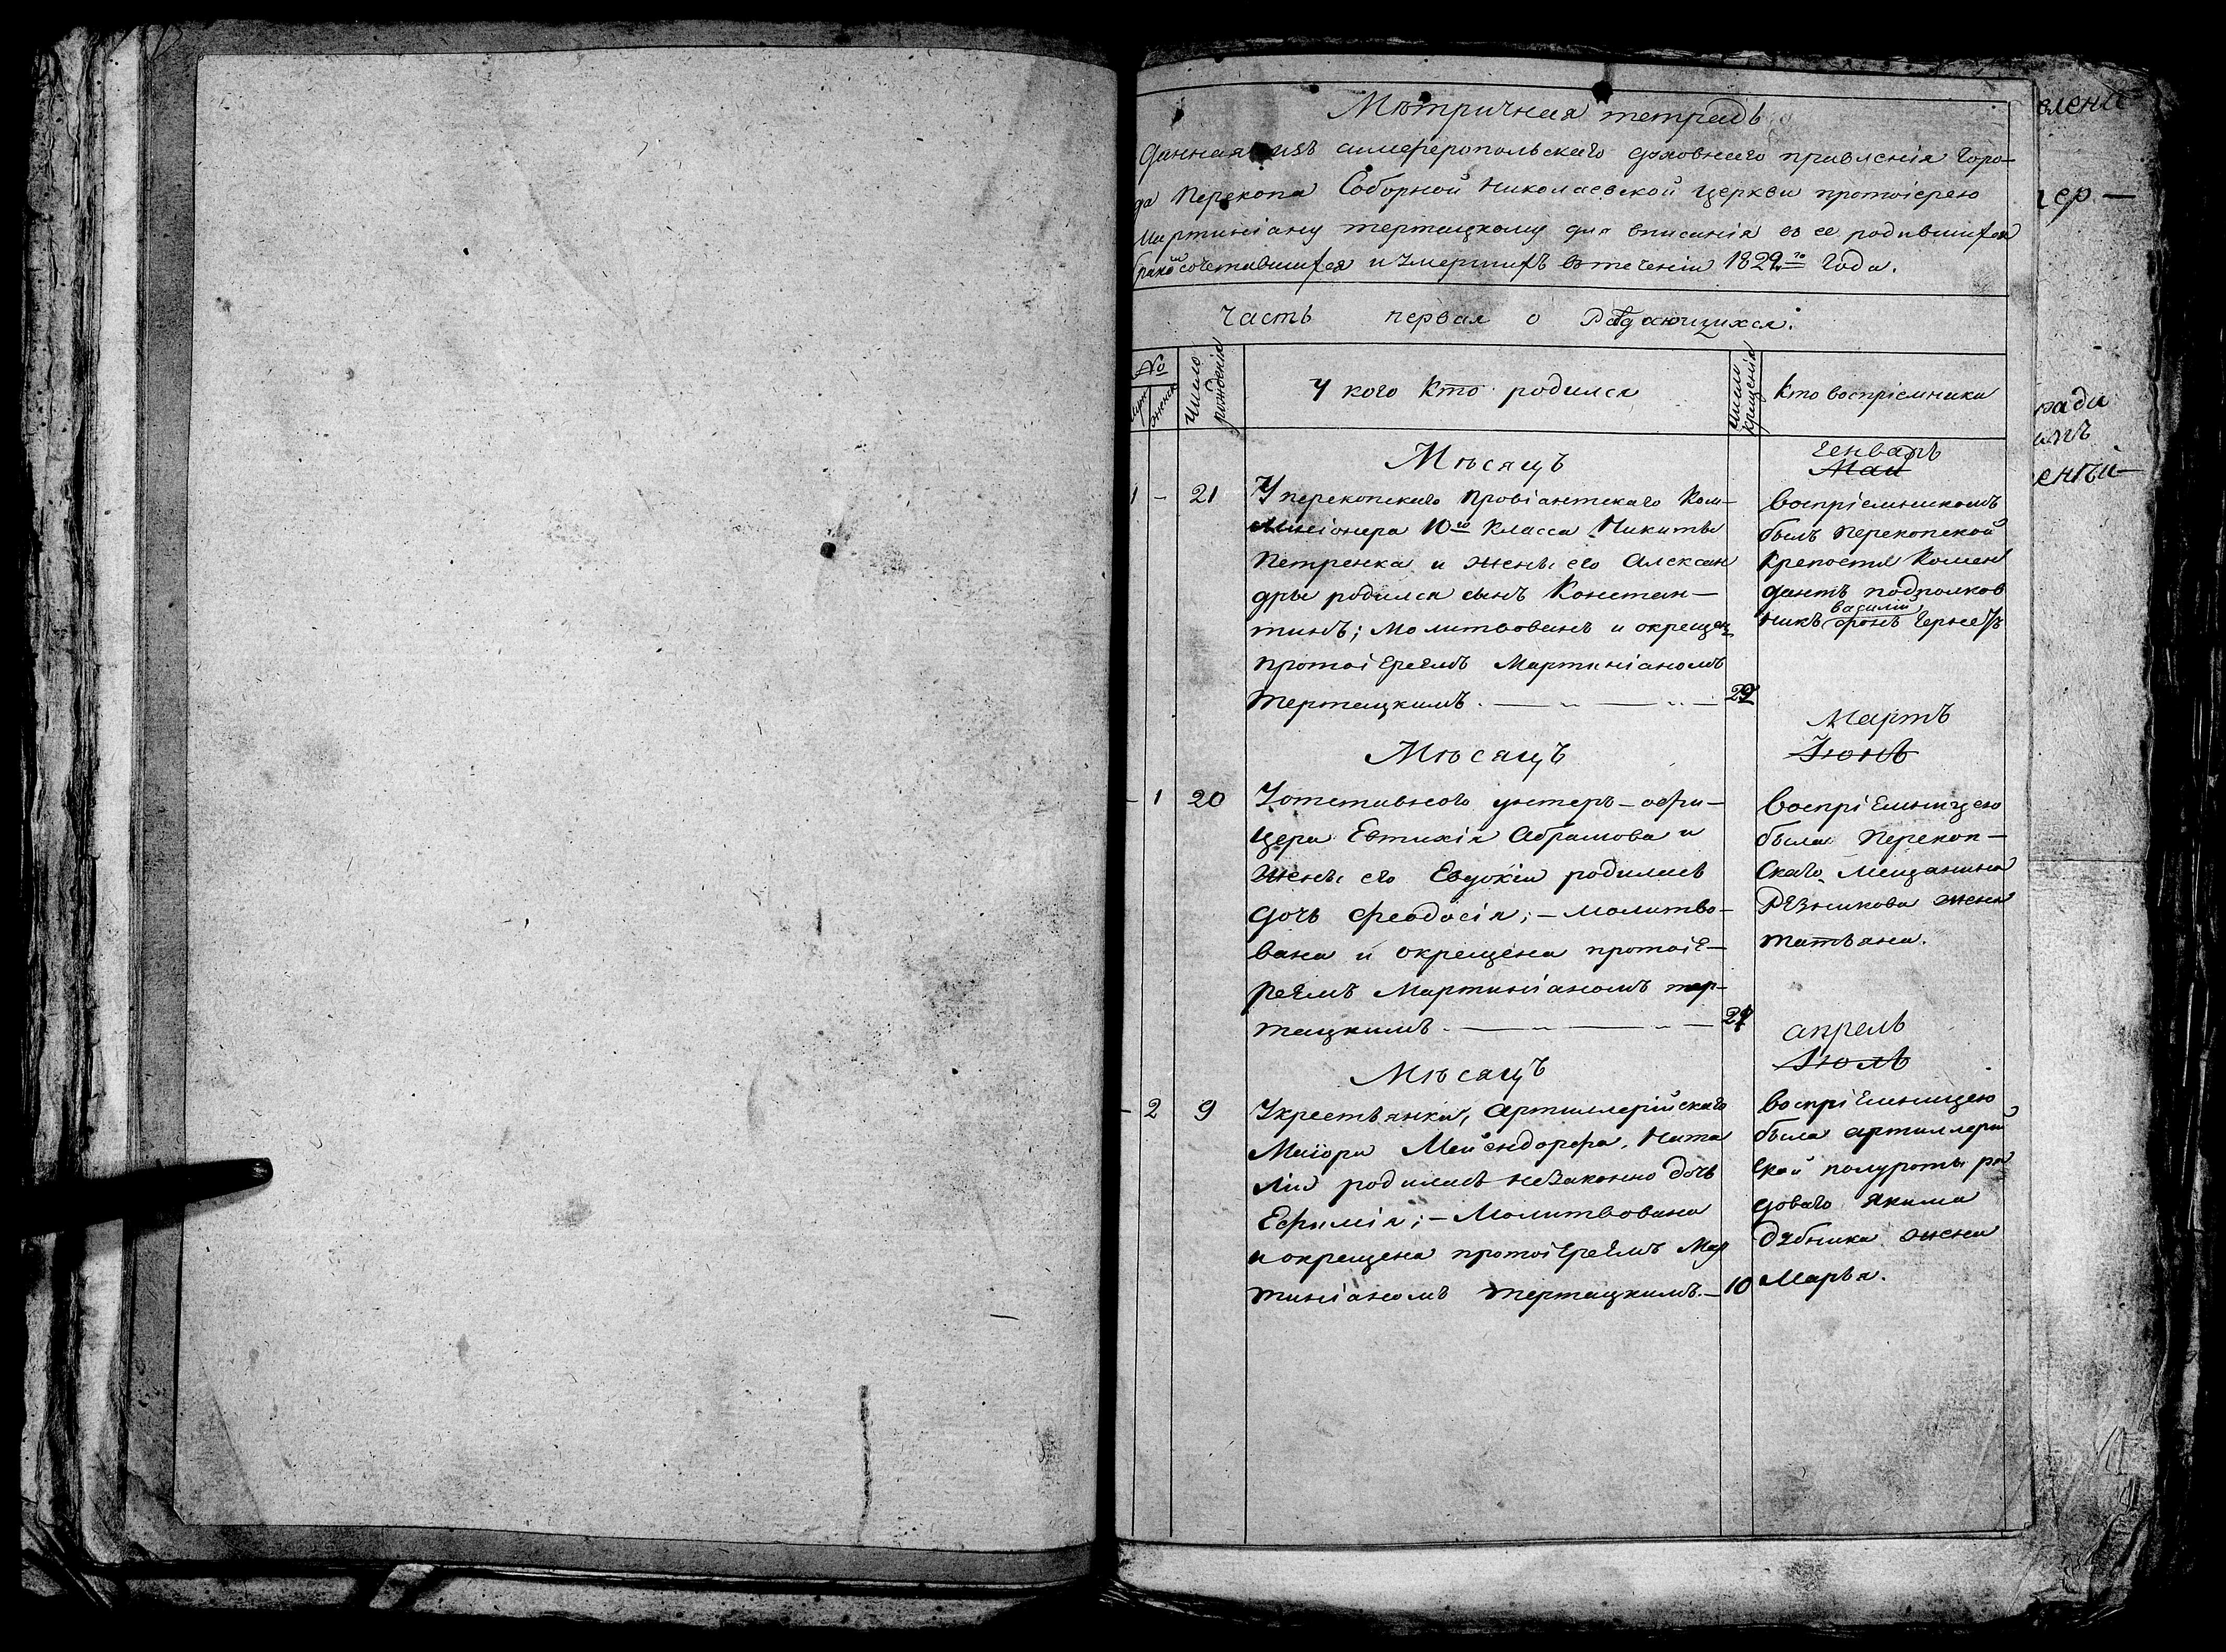 Мѣтричная тетрадь
данная изъ симферопольскаго духовнаго правленія горо-
да Перекопа Соборной Николаевской церкви протоіерею
Мартиніану тертацкому для вписанія въ ее родившихся
бракосочетавшихся и умершихъ въ теченіи 1829го года.
Часть первая о Раждающихся.
№
муж
женск
Число рожденія
У кого Кто родился
Число крещенія
Кто воспріемники
Мѣсяцъ
Генварь
Маи
1 - 21
У перекопскаго Провіантскаго Ком-
мисіонера 10го Класса Никиты
Петренка и жены его Алексан
дры родился сынъ Констан-
тинъ; Молитвованъ и окрещен
протоіереемъ Мартиніаномъ
тертацкимъ.
29
воспріемникомъ
былъ Перекопской
Крепости Комен
дантъ подполков
василій
никъ фонъ
Мѣсяцъ
Мартъ
Іюнь
- 1 20
У отставного унтеръ-офи-
цера Евтихія Абрамова и
жены его Евдокіи родилась
дочь Феодосія; - молитво-
вана и окрещена протоіе-
реемъ Мартиніаномъ тер-
тацкимъ.
24
воспріемницею
была Перекоп-
скаго мещанина
Резникова жена
татьяна.
Мѣсяцъ
апрель
Іюль
- 2 9
У крестьянки, Артиллерійскаго
Маіора Мейендорфа, Ната
ліи родилась незаконно дочь
Ефимія; - Молитвована
и окрещена протоіереемъ Мар
тиніаномъ тертацкимъ. -
10
воспріемницею
была артиллерій
ской полуроты ря
доваго Якима
дубника жена
Марья.
вленіе
цер-
ради
ихъ
енный-